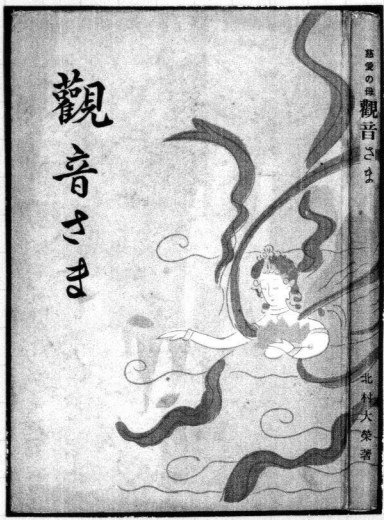 觀音さま
慈愛の母 觀音さま
北村大榮著